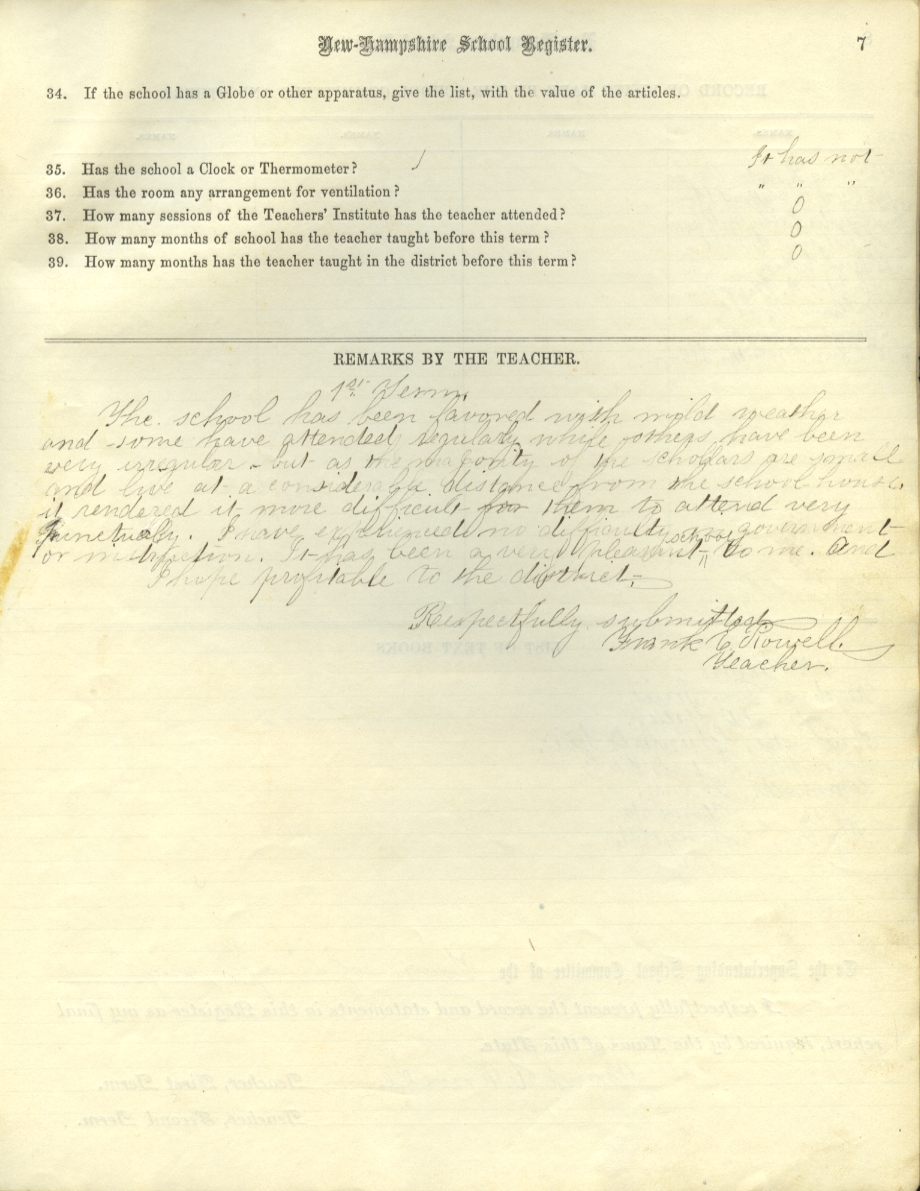 New-Hampshire School Register.
7
34. If the school has a Globe or other apparatus, give the list, with the value of the articles.
35. Has the school a Clock or Thermometer? It has not
36. Has the room any arrangement for ventilation? " " "
37. How many sessions of the Teachers' Institute has the teacher attended? 0
38. How many months of school has the teacher taught before this term? 0
39. How many months has the teacher taught in the district before this term? 0
REMARKS BY THE TEACHER.
1st Term.
The school has been favored with mild weather
and some have attended regularly while others have been
very irregular - but as the majority of the scholars are small
and live at a considerable distance from the school house
it rendered it more difficult for them to attend very
punctually. I have experienced no difficulty in government
or instruction. It has been a very pleasant school to me. And
I hope profitable to the district.
Respectfully submitted
Frank E. Rowell.
Teacher.